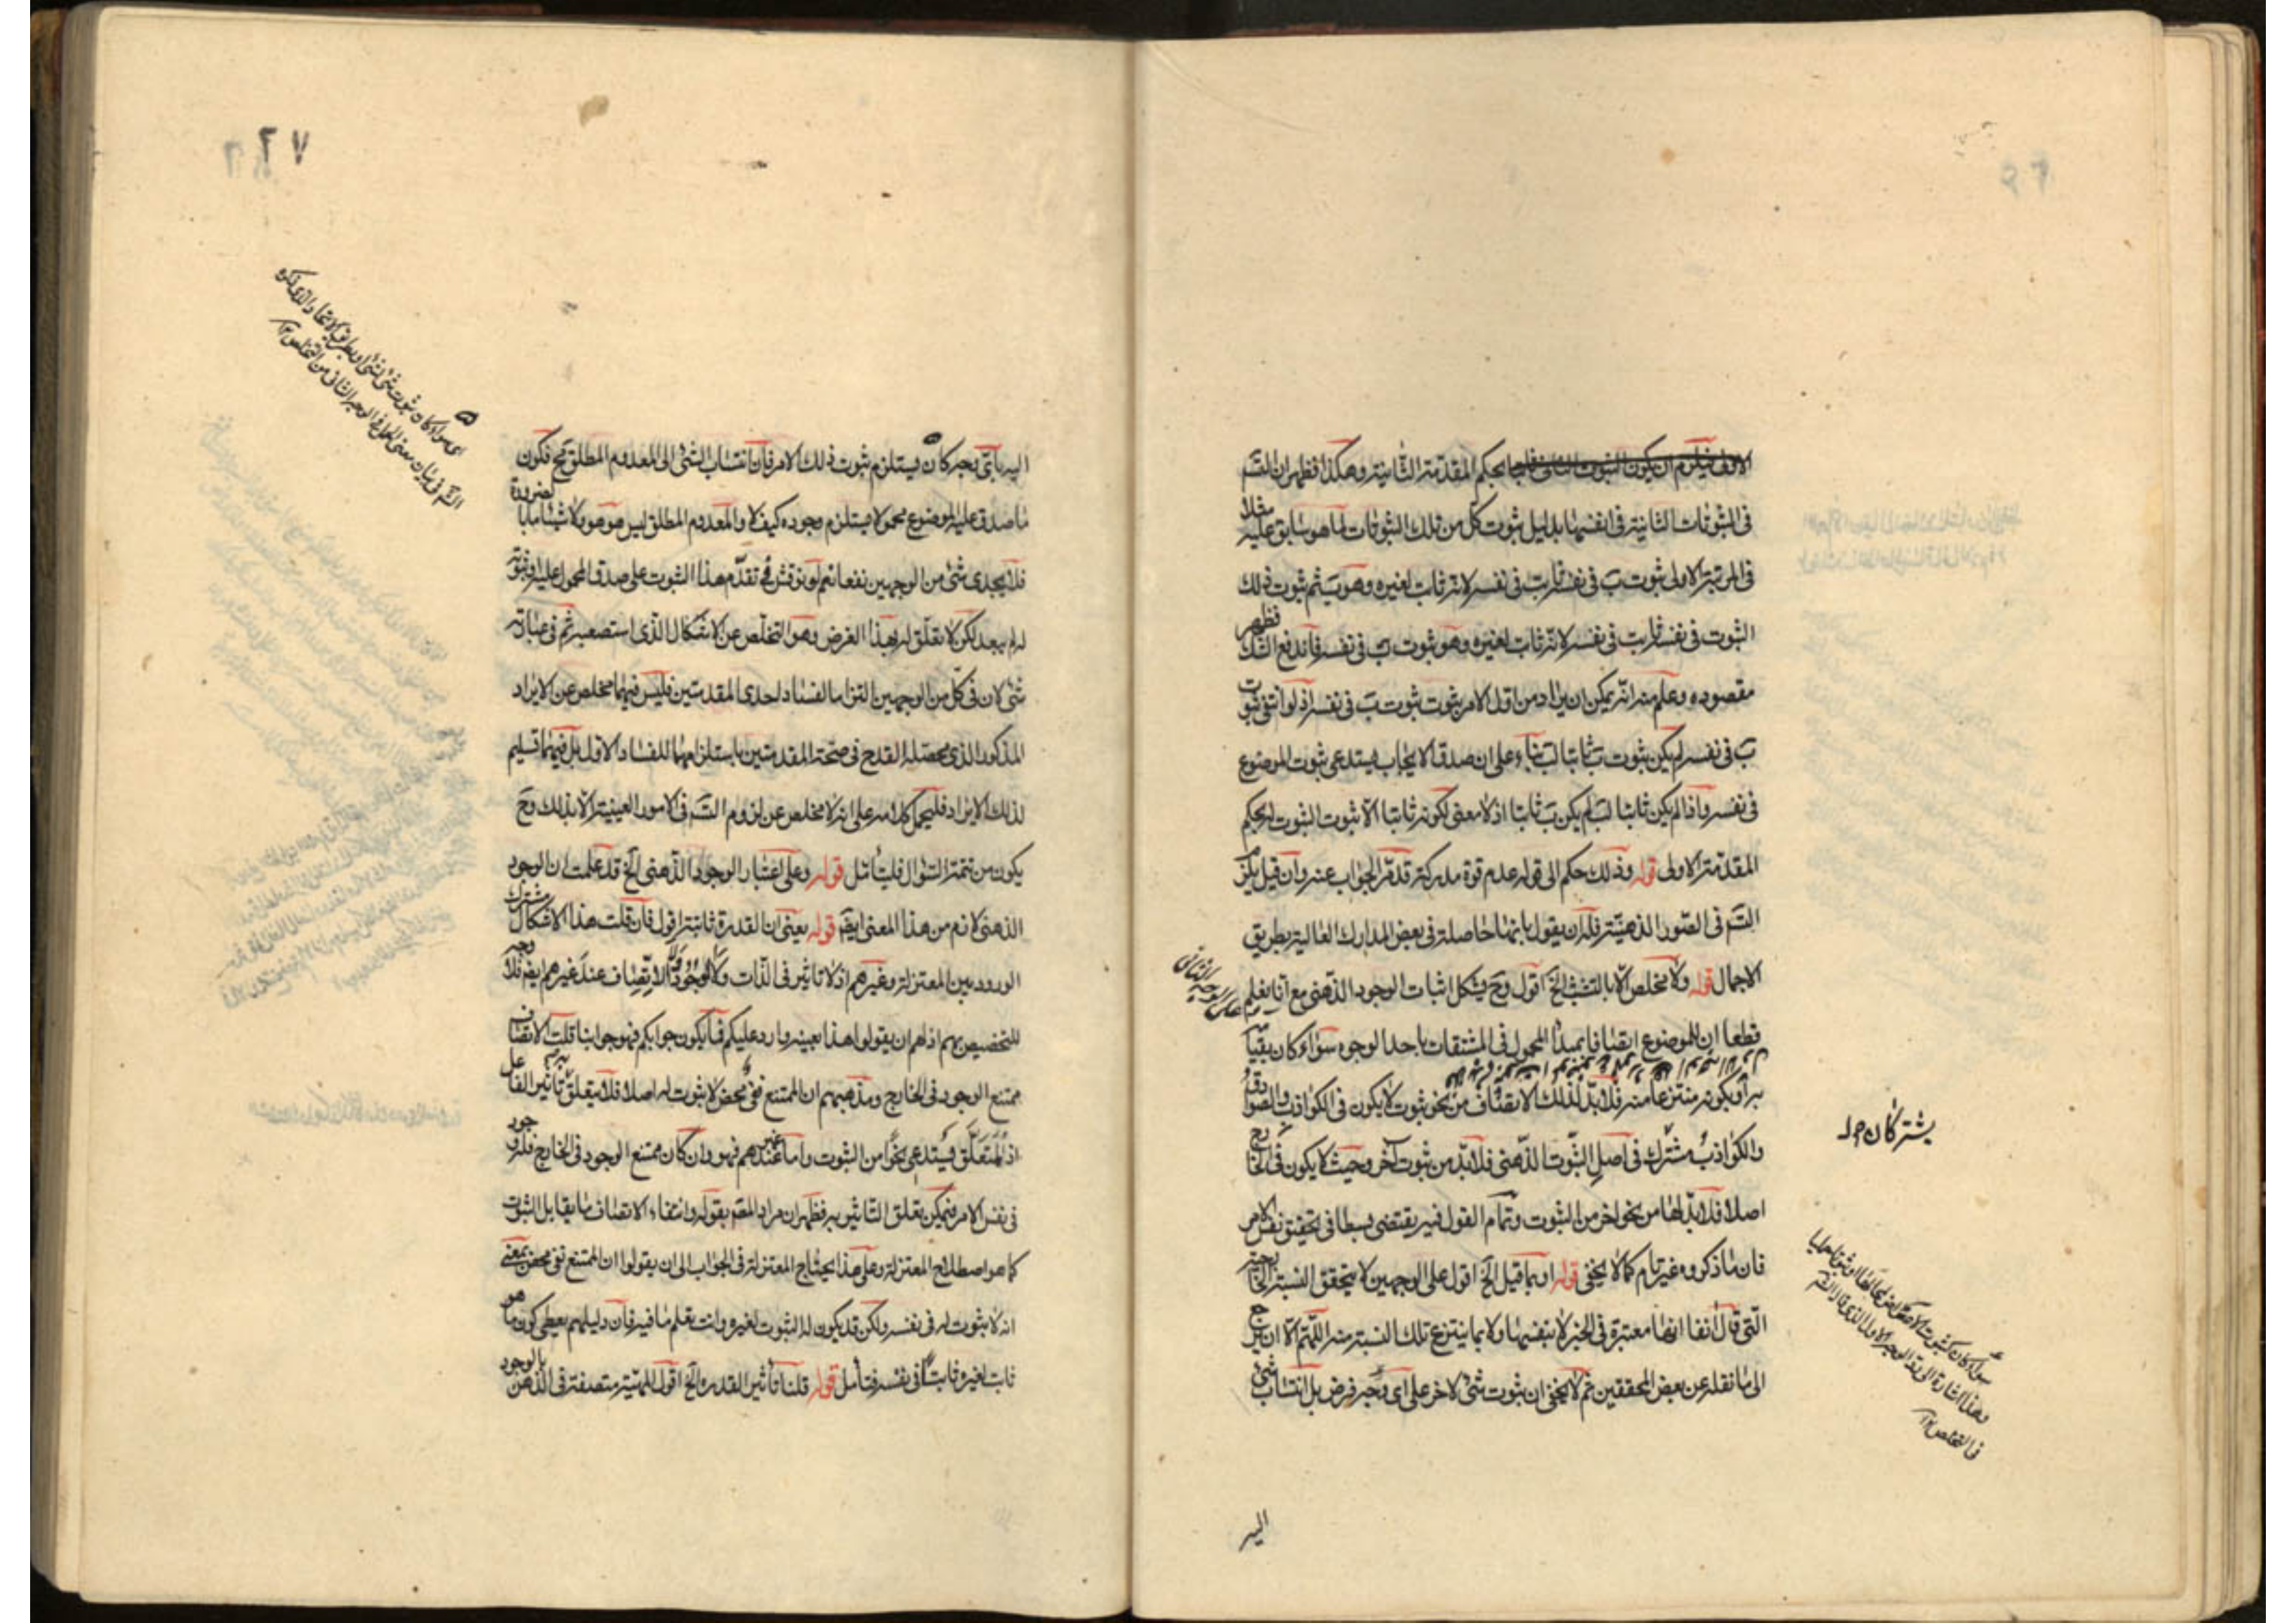 الاولى فيلزم ان يكون الثبوت الثانى ثابتا بحكم المقدمة الثانية وهكذا فظهر ان التسـ
فى الثبوتات الثانية فى انفسها بدليل ثبوت كل من تلك الثبوتات لما هو سابق عليه مثلا
فى المرتبة الاولى ثبوت ب فى نفسه ثابت فى نفسه لانه ثابت لغيره وهو ب ثم ثبوت ذلك
الثبوت فى نفسه ثابت فى نفسه لانه ثابت لغيره وهو ثبوت ب فى نفسه فاندفع الشك فظهر
مقصوده وعلم منه انه يمكن ان يراد من اول الامر ثبوت ثبوت ب فى نفسه اذ لو انتفى ثبوت
ب فى نفسه لم يكن ثبوت ب ثابتا لب بناء على ان صدق الايجاب يستدعى ثبوت الموضوع
فى نفسه واذا لم يكن ثابتا لب لم يكن ب ثابتا اذ لا معنى لكونه ثابتا الا ثبوت الثبوت له بحكم
المقدمة الاولى قوله وذلك حكم الى قوله عدم قوة مدركة قد مر الجواب عنه وان قيل يلزم
التسـ فى الصور الذهنية فله ان يقول بانها حاصلة فى بعض المدارك العالية بطريق
الاجمال قوله ولا مخلص الا بالتشبث الخ اقول وح يشكل اثبات الوجود الذهنى مع انا نعلم
قطعا ان للموضوع اتصافا بمبدأ المحمول فى المشتقات باحد الوجوه سواء كان بقيامه
به او بكونه منتزعا منه فلابد لذلك الاتصاف من نحو ثبوت لا يكون فى الكواذب والصوادق
والكواذب مشترك فى اصل الثبوت الذهنى فلابد من ثبوت آخر وحيث لا يكون فى الخارج
اصلا فلابد لها من نحو اخر من الثبوت وتمام القول فيه يقتضى بسطا فى تحقيق نفس الامر
فان ما ذكروه غير تام كما لا يخفى قوله او بما قيل الخ اقول على الوجهين لا يتحقق النسبة الخارجية
التى قال آنفا انها معتبرة فى الخبر لا بنفسها ولا بما ينتزع تلك النسبة منه اللهم الا ان يرجع
الى ما نقله عن بعض المحققين ثم لا يخفى ان ثبوت شئ لاخر على اى وجه فرض بل انتساب شئ
يشتركان
فى التخلص ١٢
اليه
٢٧
اليه باى وجه كان يستلزم ثبوت ذلك الامر فان انتساب الشئ الى المعدوم المطلق مح فكون
ما صدق عليه الموضوع محمولا يستلزم وجوده كيف لا والمعدوم المطلق ليس هو هو ولا شيئا ما بالضرورة
فلا يجدى شئ من الوجهين نفعا نعم لو نوقش فى تقدم هذا الثبوت على صدق المحمول عليه وثبوته
له لم يبعد لكن لا تعلق له بهذا الغرض وهو التخلص عن الاشكال الذى استصعبه ثم فى عبارته
شئ لان فى كل من الوجهين التزاما لفساد احدى المقدمتين فليس فيهما مخلص عن الايراد
المذكور الذى محصله القدح فى صحة المقدمتين باستلزامهما للفساد الاول بل فيهما تسليم
لذلك الايراد فليحمل كلامه على انه لا مخلص عن لزوم التسـ فى الامور العينية الا بذلك وح
يكون من تتمة السؤال فليتأمل قوله وعلى اعتبار الوجود الذهنى الخ قد علمت ان الوجود
الذهنى لازم من هذا المعنى ايضا قوله يعنى ان القدرة ثابتة اقول فان قلت هذا الاشكال مشترك
الورود بين المعتزلة وغيرهم اذ لا تاثير فى الذات ولا الوجود ولا الاتصاف عند غيرهم ايضا فلا وجه
للتخصيص بهم اذ لهم ان يقولوا هذا بعينه وارد عليكم فما يكون جوابكم فهو جوابنا قلت الاتصاف
ممتنع الوجود فى الخارج ومذهبهم ان الممتنع نفى محض لا ثبوت له اصلا فلا يتعلق تأثير الفاعل به
اذ التعلق يستدعى نحوا من الثبوت واما عند غيرهم فهو وان كان ممتنع الوجود فى الخارج فله وجود
فى نفس الامر فيمكن تعلق التأثير به فظهر ان مراد المصـ بقوله وانتفاء الاتصاف ما يقابل الثبوت
كما هو اصطلاح المعتزلة وعلى هذا يحتاج المعتزلة فى الجواب الى ان يقولوا ان الممتنع نفى محض بمعنى
انه لا ثبوت له فى نفسه ولكن قد يكون له الثبوت لغيره وانت تعلم ما فيه فان دليلهم يعطى كون ما هو
ثابت لغيره ثابتا فى نفسه فتأمل قوله قلنا تأثير القدرة الخ اقول الماهية متصفة فى الذهن بالوجود